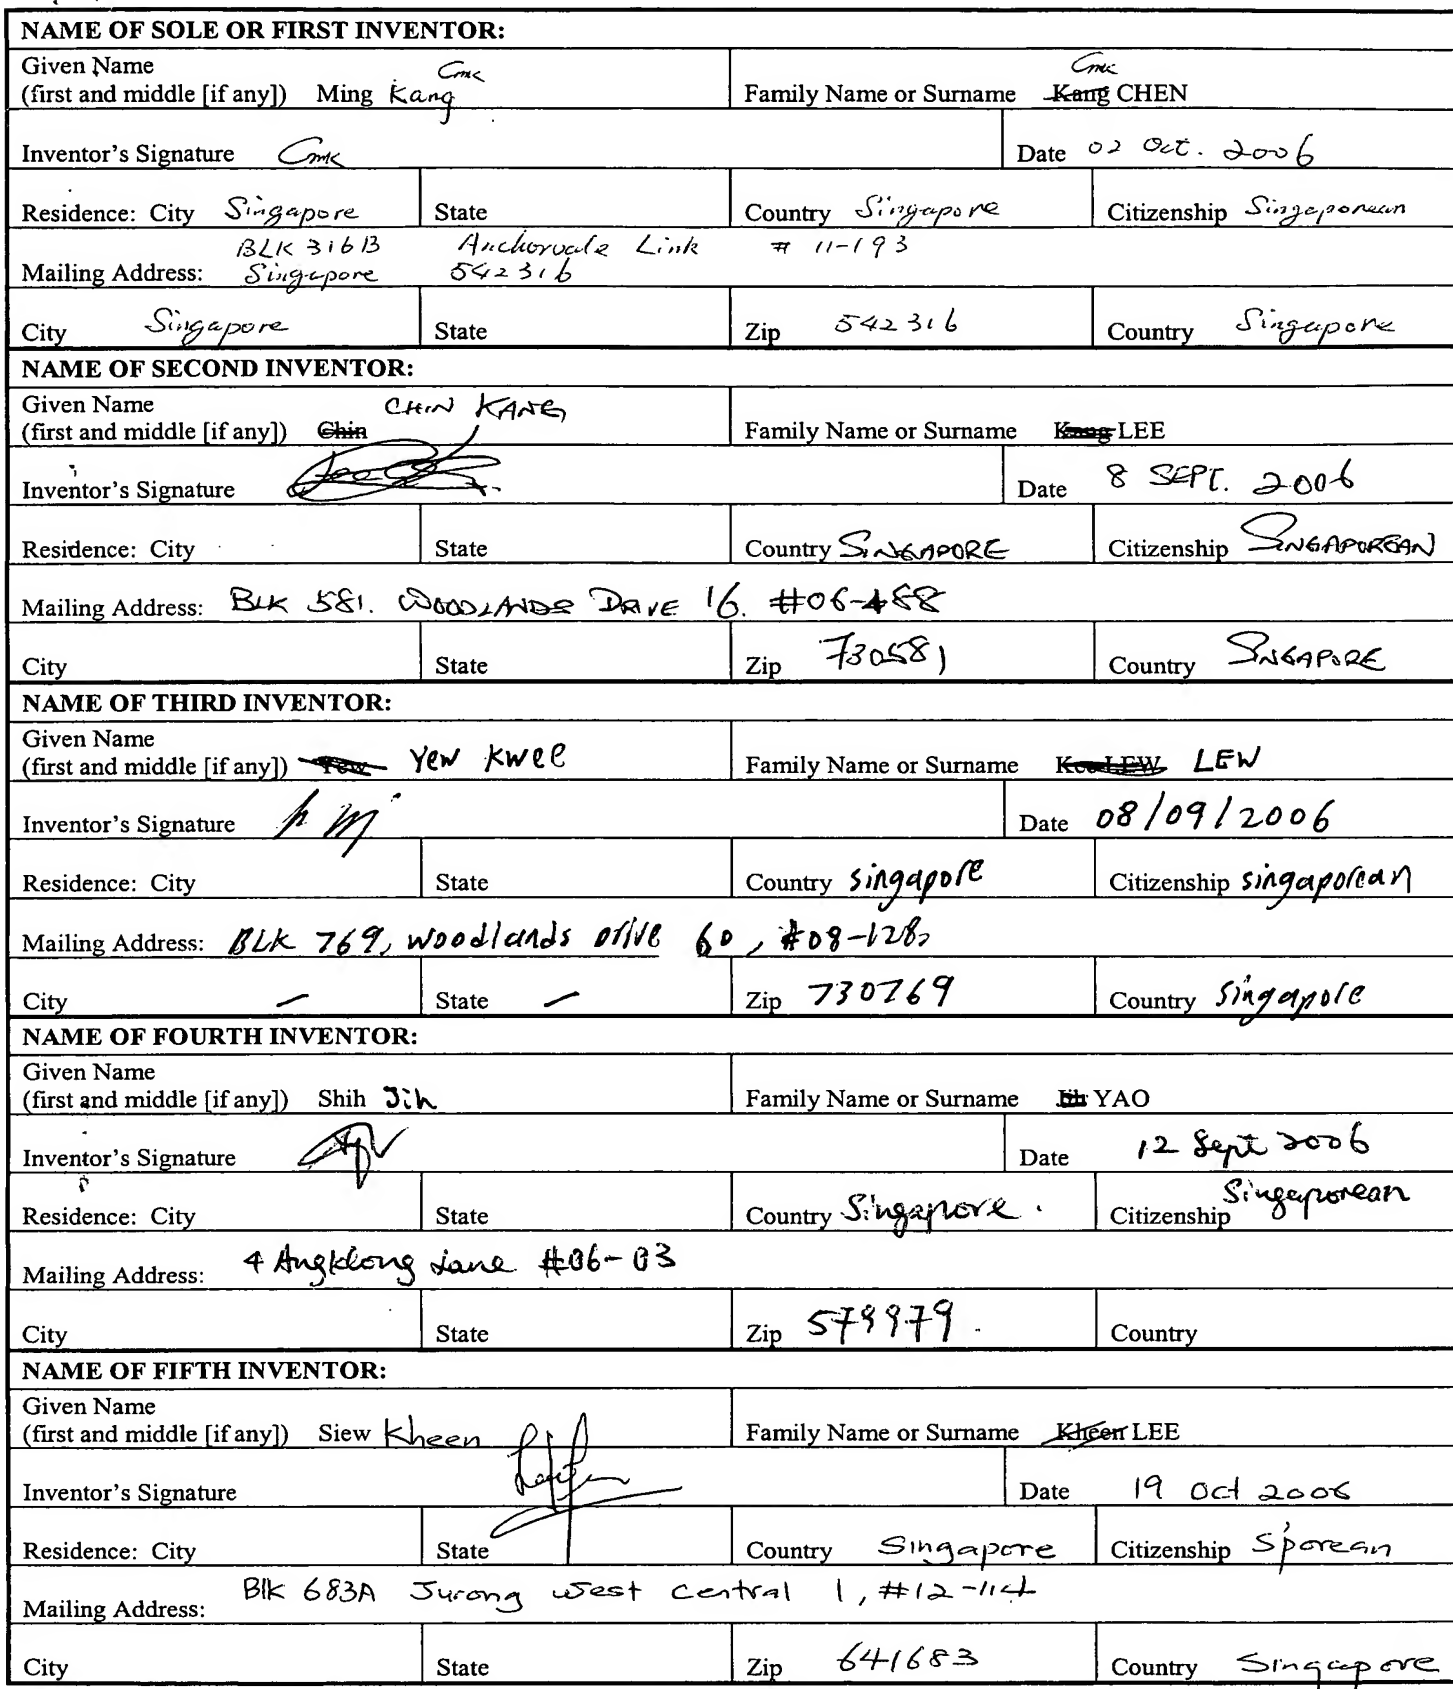 NAME OF SOLE OR FIRST INVENTOR:
Given Name
(first and middle [if any]) Ming Kang Cmk
Family Name or Surname Kang CHEN Cmk
Inventor's Signature Cmk
Date 02 Oct. 2006
Residence: City Singapore
State
Country Singapore
Citizenship Singaporean
BLK 316B Anchorvale Link # 11-193
Mailing Address: Singapore 542316
City Singapore
State
Zip 542316
Country Singapore
NAME OF SECOND INVENTOR:
Given Name CHIN KANG
(first and middle [if any]) Chin
Family Name or Surname Kang LEE
Inventor's Signature
Date 8 SEPT. 2006
Residence: City
State
Country SINGAPORE
Citizenship SINGAPOREAN
Mailing Address: BLK 581. WOODLANDS DRIVE 16. #06-488
City
State
Zip 730581
Country SINGAPORE
NAME OF THIRD INVENTOR:
Given Name
(first and middle [if any]) Yew Yew Kwee
Family Name or Surname Kee LEW LEW
Inventor's Signature
Date 08/09/2006
Residence: City
State
Country singapore
Citizenship singaporean
Mailing Address: BLK 769, woodlands drive 60, #08-128,
City –
State –
Zip 730769
Country singapore
NAME OF FOURTH INVENTOR:
Given Name
(first and middle [if any]) Shih Jih
Family Name or Surname Jih YAO
Inventor's Signature
Date 12 Sept 2006
Residence: City
State
Country Singapore.
Citizenship Singaporean
Mailing Address: 4 Angklong Lane #06-03
City
State
Zip 579979.
Country
NAME OF FIFTH INVENTOR:
Given Name
(first and middle [if any]) Siew Kheen
Family Name or Surname Kheen LEE
Inventor's Signature
Date 19 Oct 2006
Residence: City
State
Country Singapore
Citizenship S'porean
Mailing Address: Blk 683A Jurong West Central 1, #12-114
City
State
Zip 641683
Country Singapore